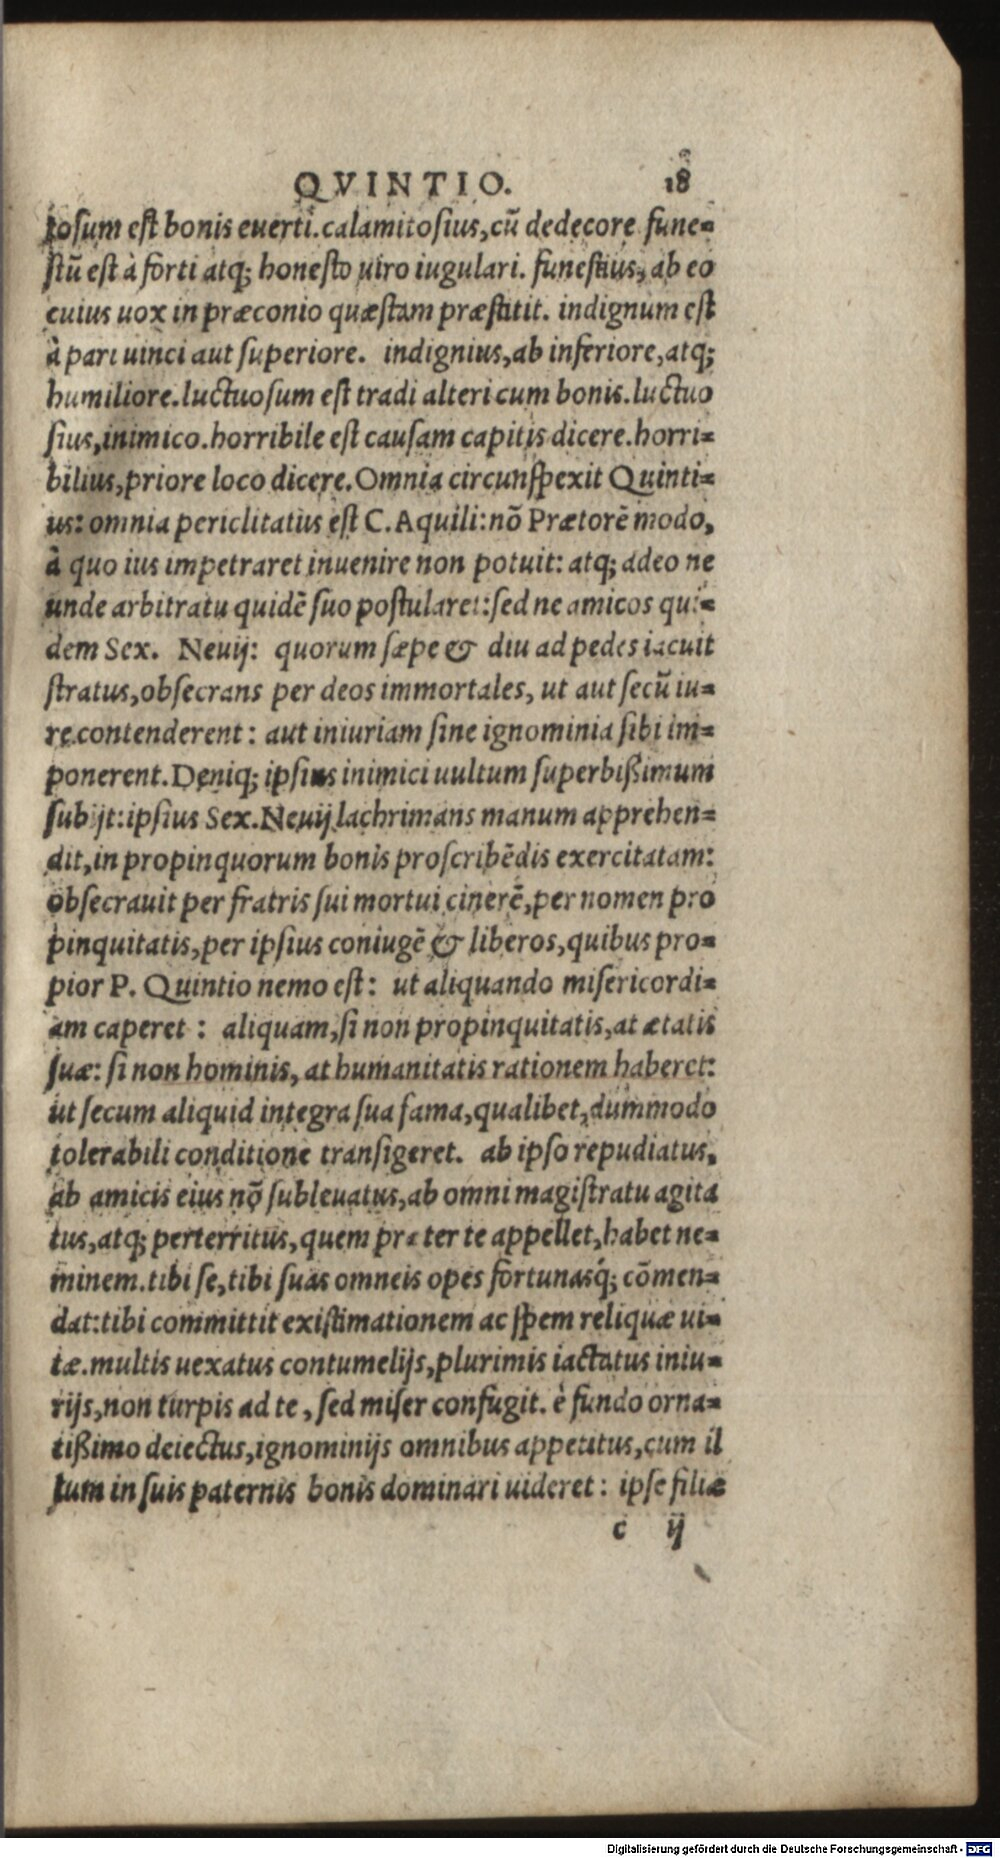 QVINTIO. 18
tosum est bonis euerti. calamitosius, cū dedecore. fune=
stū est à forti atq; honesto uiro iugulari. funestius, ab eo
cuius uox in præconio quæstum præstitit. indignum est
à pari uinci aut superiore. indignius, ab inferiore, atq;
humiliore. luctuosum est tradi alteri cum bonis. luctuo
sius, inimico. horribile est causam capitis dicere. horri=
bilius, priore loco dicere. Omnia circunspexit Quinti=
us: omnia periclitatus est C. Aquili: nō Prætorē modo,
à quo ius impetraret inuenire non potuit: atq; adeo ne
unde arbitratu quidē suo postularet: sed ne amicos qui=
dem Sex. Neuij: quorum sæpe & diu ad pedes iacuit
stratus, obsecrans per deos immortales, ut aut secū iu=
re contenderent: aut iniuriam sine ignominia sibi im=
ponerent. Deniq; ipsius inimici uultum superbißimum
subijt: ipsius Sex. Neuij lachrimans manum apprehen=
dit, in propinquorum bonis proscribēdis exercitatam:
obsecrauit per fratris sui mortui cinerē, per nomen pro
pinquitatis, per ipsius coniugē & liberos, quibus pro=
pior P. Quintio nemo est: ut aliquando misericordi=
am caperet: aliquam, si non propinquitatis, at ætatis
suæ: si non hominis, at humanitatis rationem haberet:
ut secum aliquid integra sua fama, qualibet, dummodo
tolerabili conditione transigeret. ab ipso repudiatus,
ab amicis eius nō subleuatus, ab omni magistratu agita
tus, atq; perterritus, quem præter te appellet, habet ne=
minem. tibi se, tibi suas omneis opes fortunasq́; cōmen=
dat: tibi committit existimationem ac spem reliquæ ui=
tæ. multis uexatus contumelijs, plurimis iactatus iniu=
rijs, non turpis ad te, sed miser confugit. è fundo orna=
tißimo deiectus, ignominijs omnibus appetitus, cum il
lum in suis paternis bonis dominari uideret: ipse filiæ
c ij
Digitalisierung gefördert durch die Deutsche Forschungsgemeinschaft - DFG